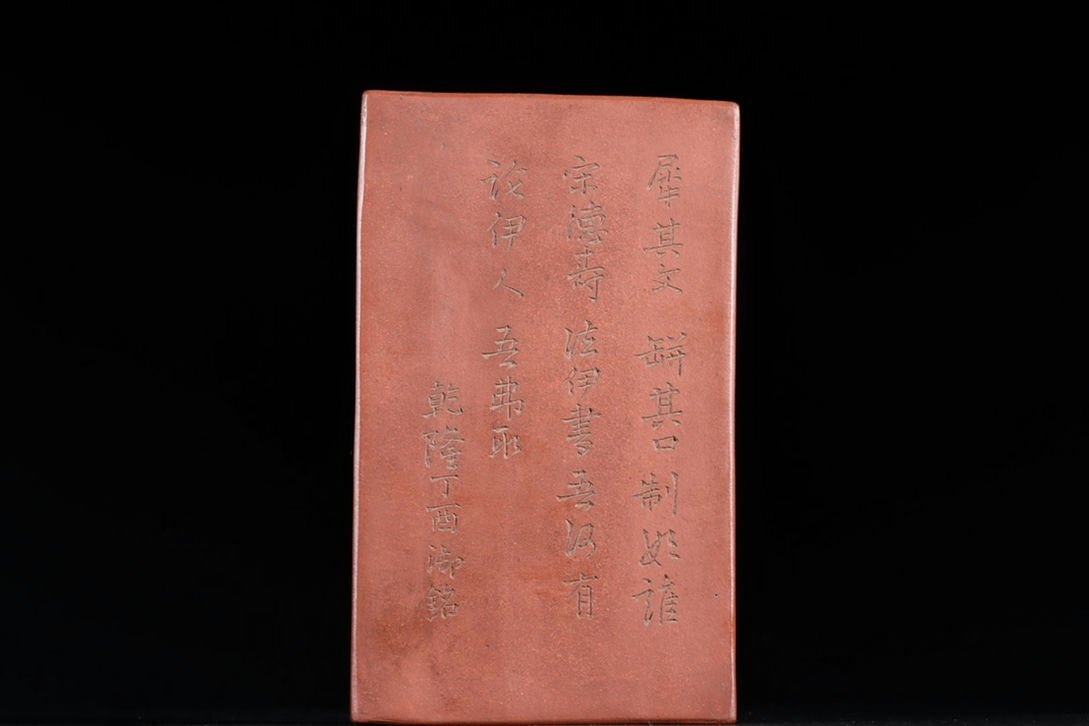 犀其文缾其口制始誰
宋德壽法伊書吾何有
論伊人吾弗取
乾隆丁酉御銘